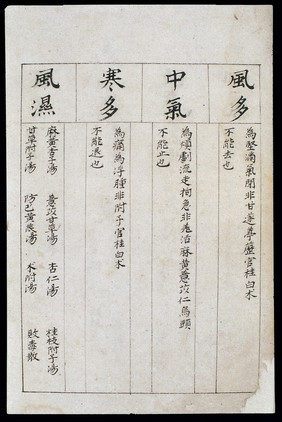 風多
為堅痛氣閉非甘遂葶藶官桂白朮
不能去也
中氣
為煩劇流走拘急非羌活麻黃薏苡仁烏頭
不能已也
寒多
為痛為浮腫非附子官桂白朮
不能退也
風濕
麻黃杏子湯 薏苡甘草湯 杏仁湯 桂枝附子湯
甘草附子湯 防已黃茋湯 朮附湯 敗毒散